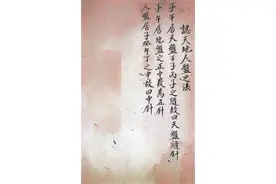 認天地人盤之法
子午居天盤壬子丙午之縫故曰天盤縫針
子午居地盤之正中故為正針
人盤居子癸午丁之中故曰中針